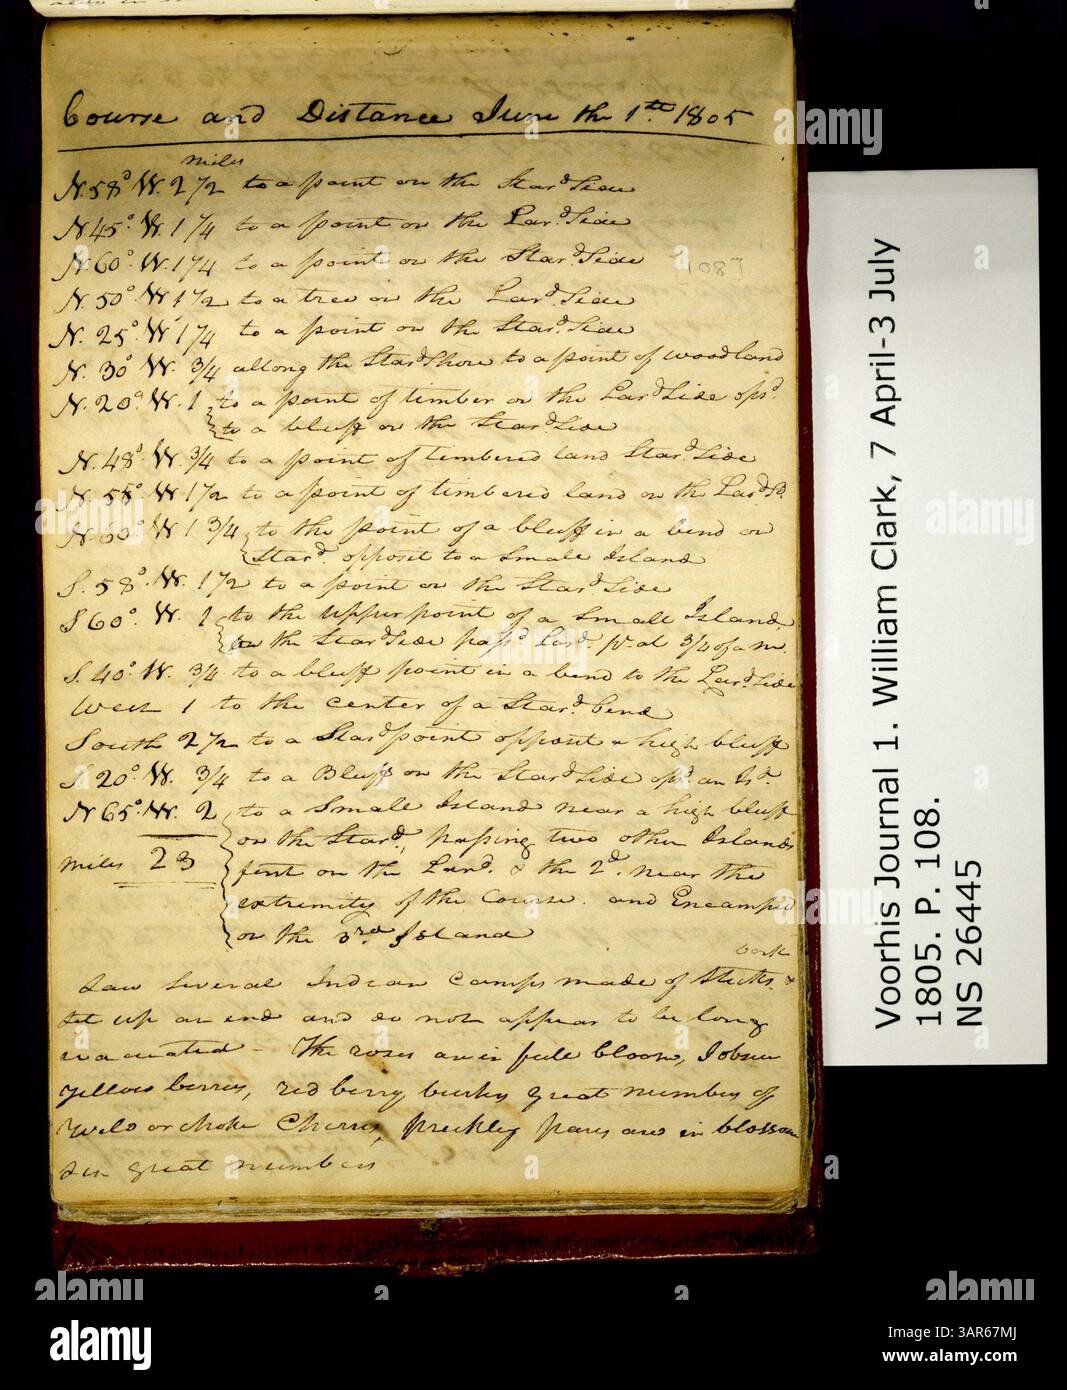 Course and Distance June the 1st. 1805
miles
N. 58° W. 2 1/2 to a point on the Stard. Side
N. 45° W. 1 1/4 to a point on the Lard. Side
N. 60° W. 1 1/4 to a point on the Stard. Side
108]
N. 50° W 1 1/2 to a tree on the Lard. Side
N. 25° W 1 1/4 to a point on the Stard. Side
N. 30° W. 3/4 allong the Stard Shore to a point of woodland
N. 20° W. 1 to a point of timber on the Lard Side opsd.
to a bluff on the Stard Side
N. 48° W. 3/4 to a point of timbered land Stard. Side
N. 55° W 1 1/2 to a point of timbered land on the Lard S.
N. 60° W 1 3/4 to the point of a bluff in a bend on
Stard. opposit to a Small Island
S. 58° W. 1 1/2 to a point on the Stard. Side
S 60° W. 1 to the upper point of a Small Island
on the Stard Side passd. Lard. pt. at 3/4 of a m.
S. 40° W. 3/4 to a bluff point in a bend to the Lard. Side
West 1 to the center of a Stard. bend
South 2 1/2 to a Stard point opposit a high bluff
S. 20° W. 3/4 to a Bluff on the Stard Side opsd. an Isd.
N 65° W. 2 to a Small Island near a high bluff
on the Stard, passing two other Islands
miles 23
first on the Lard. & the 2d. near the
extremity of the Course. and Encamped
on the 3rd Island
bark
Saw Several Indian Camps made of Sticks &
Set up on end and do not appear to be long
evacuated - The roses are in full bloom, I observe
yellow berries, red berry bushes Great numbers of
Wild or choke Cherries, prickley pares are in blossom
& in great numbers
Voorhis Journal 1. William Clark, 7 April-3 July
1805. P. 108.
NS 26445
alamy
Image ID: 3AR67MJ
www.alamy.com